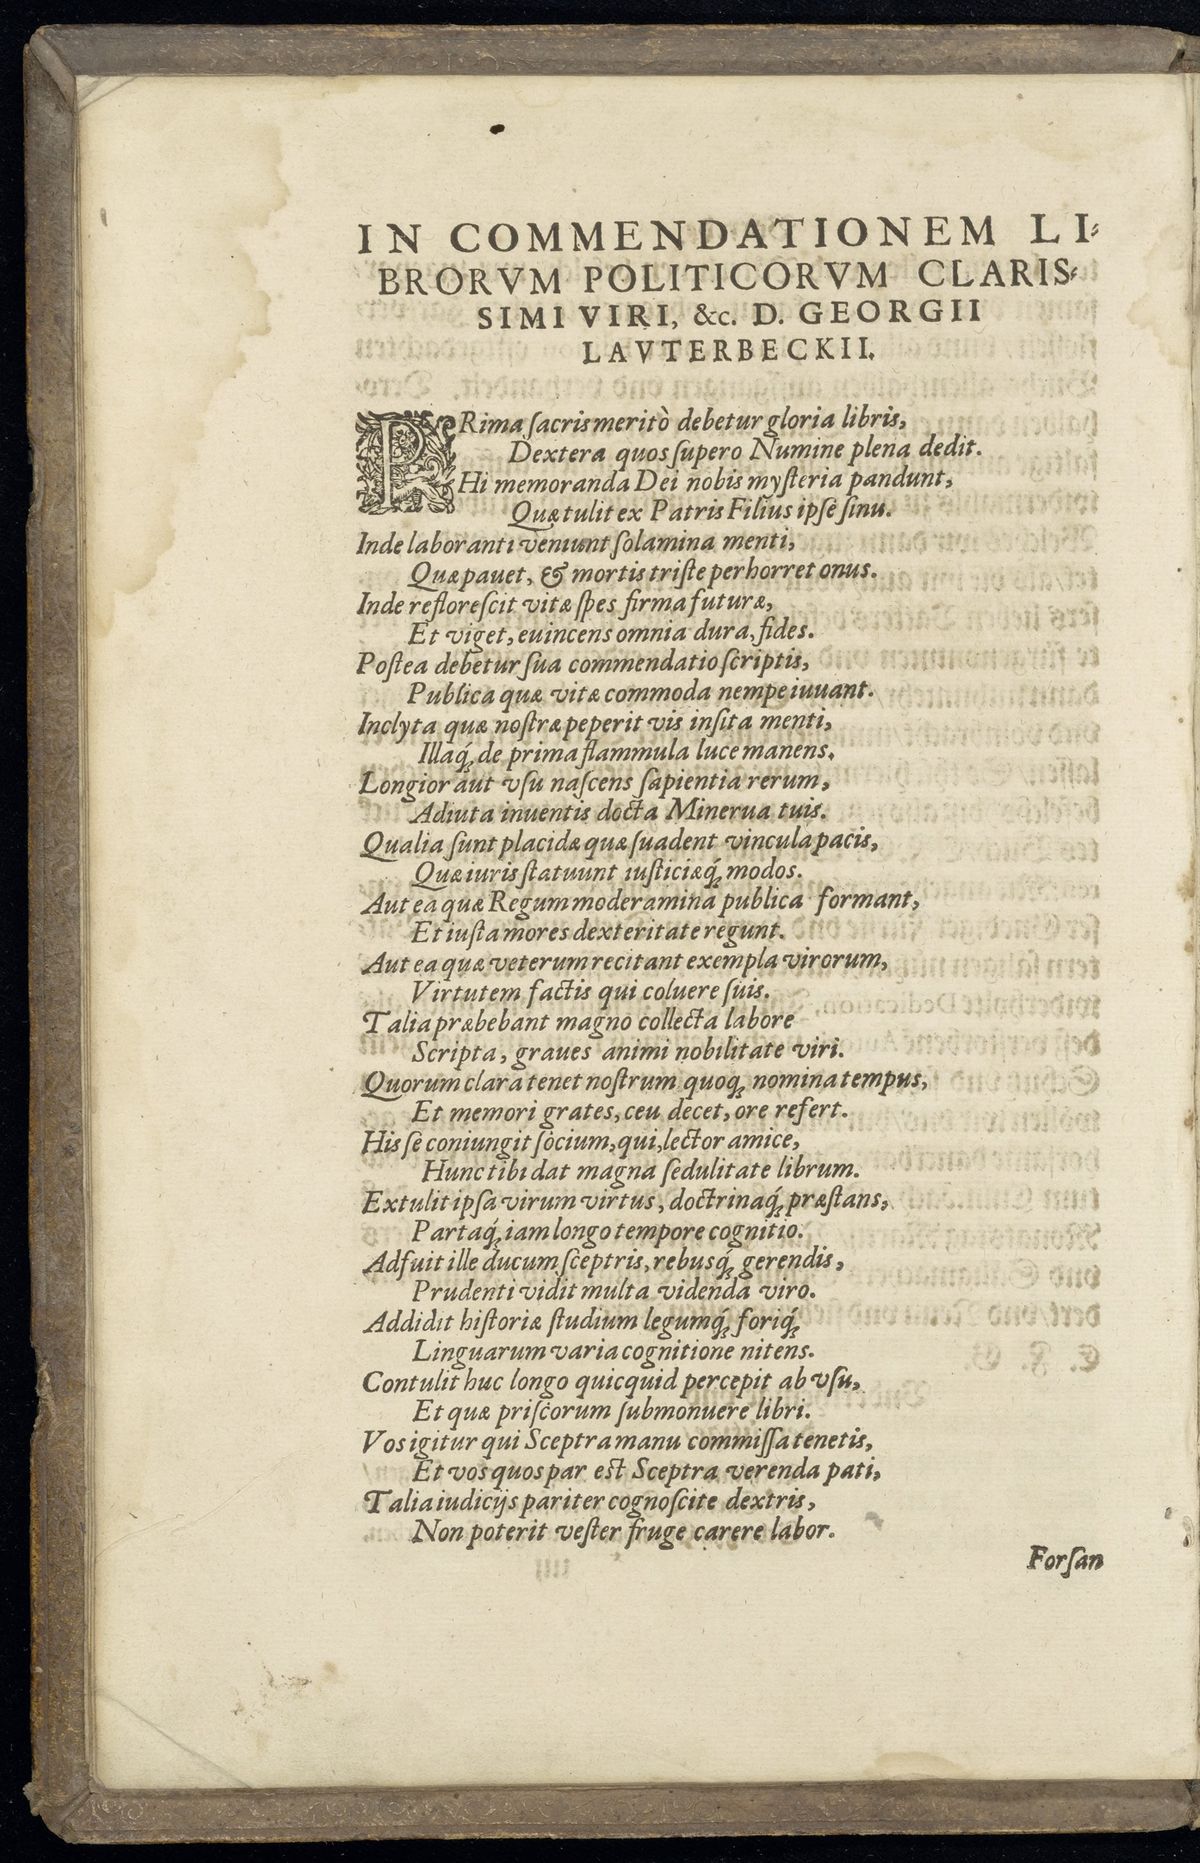 IN COMMENDATIONEM LI⸗
BRORVM POLITICORVM CLARIS⸗
SIMI VIRI, &c. D. GEORGII
LAVTERBECKII.
PRima ſacris meritò debetur gloria libris,
Dextera quos ſupero Numine plena dedit.
Hi memoranda Dei nobis myſteria pandunt,
Quæ tulit ex Patris Filius ipſe ſinu.
Inde laboranti veniunt ſolamina menti,
Quæ pauet, & mortis triſte perhorret onus.
Inde refloreſcit vitæ ſpes firma futuræ,
Et viget, euincens omnia dura, fides.
Poſtea debetur ſua commendatio ſcriptis,
Publica quæ vitæ commoda nempe iuuant.
Inclyta quæ noſtræ peperit vis inſita menti,
Illaq́; de prima flammula luce manens.
Longior aut vſu naſcens ſapientia rerum,
Adiuta inuentis docta Minerua tuis.
Qualia ſunt placidæ quæ ſuadent vincula pacis,
Quæ iuris ſtatuunt iuſticiæq́; modos.
Aut ea quæ Regum moderamina publica formant,
Et iuſta mores dexteritate regunt.
Aut ea quæ veterum recitant exempla virorum,
Virtutem factis qui coluere ſuis.
Talia præbebant magno collecta labore
Scripta, graues animi nobilitate viri.
Quorum clara tenet noſtrum quoq; nomina tempus,
Et memori grates, ceu decet, ore refert.
His ſe coniungit ſocium, qui, lector amice,
Hunc tibi dat magna ſedulitate librum.
Extulit ipſa virum virtus, doctrinaq́; præſtans,
Partaq́; iam longo tempore cognitio.
Adfuit ille ducum ſceptris, rebusq́; gerendis,
Prudenti vidit multa videnda viro.
Addidit hiſtoriæ ſtudium legumq́; foriq́;
Linguarum varia cognitione nitens.
Contulit huc longo quicquid percepit ab vſu,
Et quæ priſcorum ſubmonuere libri.
Vos igitur qui Sceptra manu commiſſa tenetis,
Et vos quos par est Sceptra verenda pati,
Talia iudicijs pariter cognoſcite dextris,
Non poterit veſter fruge carere labor.
Forſan